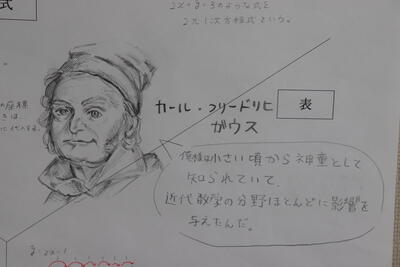 式
2x+y=3のような式を
2元1次方程式という。
の座標
きは
に代入する。
カール・フリードリヒ
ガウス
表
俺様は小さい頃から神童として
知られていて、
近代数学の分野ほとんどに影響を
与えたんだ。
y=2x-1